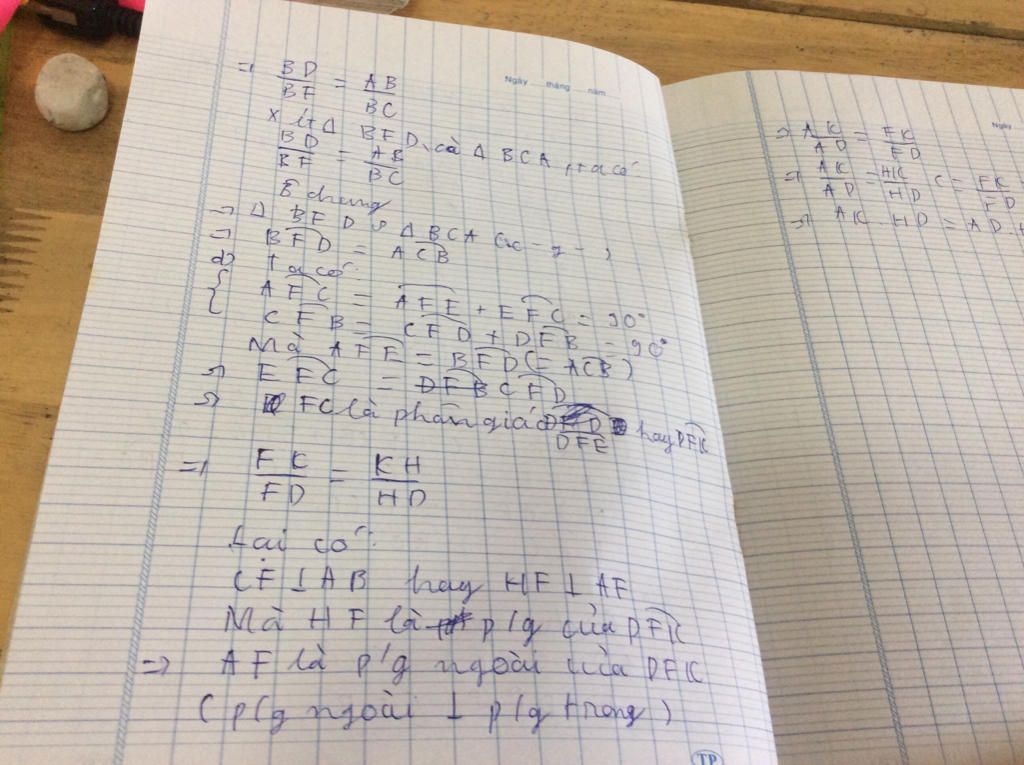 ⇒ BD/BF = AB/BC
Ngày tháng năm
Xét Δ BFD và Δ BCA, ta có:
BD/BF = AB/BC
B chung
⇒ Δ BFD ∽ Δ BCA (c-g-c)
⇒ BFD = ACB
d) Ta có:
{ AFC = AFE + EFC = 90°
CFB = CFD + DFB = 90°
Mà AFE = BFD (= ACB)
⇒ EFC = CFD
⇒ FC là phân giác DFE hay DFK
⇒ FK/FD = KH/HD
Lại có:
CF ⊥ AB hay HF ⊥ AF
Mà HF là p/g của DFK
⇒ AF là p/g ngoài của DFK
(p/g ngoài ⊥ p/g trong)
TP
Ngày
⇒ AK/AD = FK/FD
⇒ AK/AD = HK/HD (= FK/FD
⇒ AK . HD = AD .